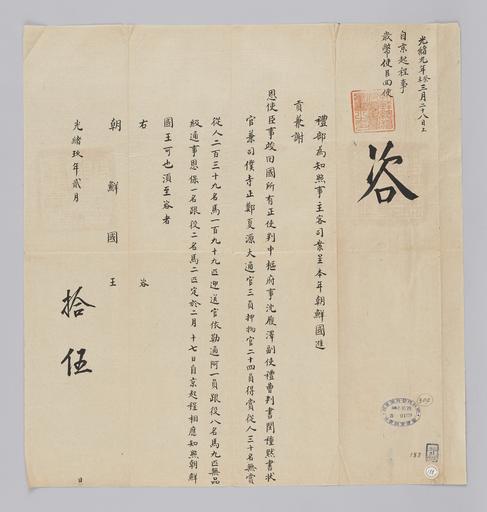 光緖九年癸未三月二十八日上
自京起程事
歲幣使臣回使
咨
禮部爲知照事主客司案呈本年朝鮮國進
貢兼謝
恩使臣事竣回國所有正使判中樞府事沈履澤副使禮曹判書閔種默書狀
官兼司僕寺正鄭夏源大通官三員押物官二十四員得賞從人三十名無賞
從人二百三十九名馬一百九十九匹迎送官依勒通阿一員跟役八名馬九匹無品
級通事恩保一名跟役二名馬二匹定於二月十七日自京起程相應知照朝鮮
國王可也須至咨者
右咨
朝鮮國王
光緖玖年貳月拾伍日
302
183